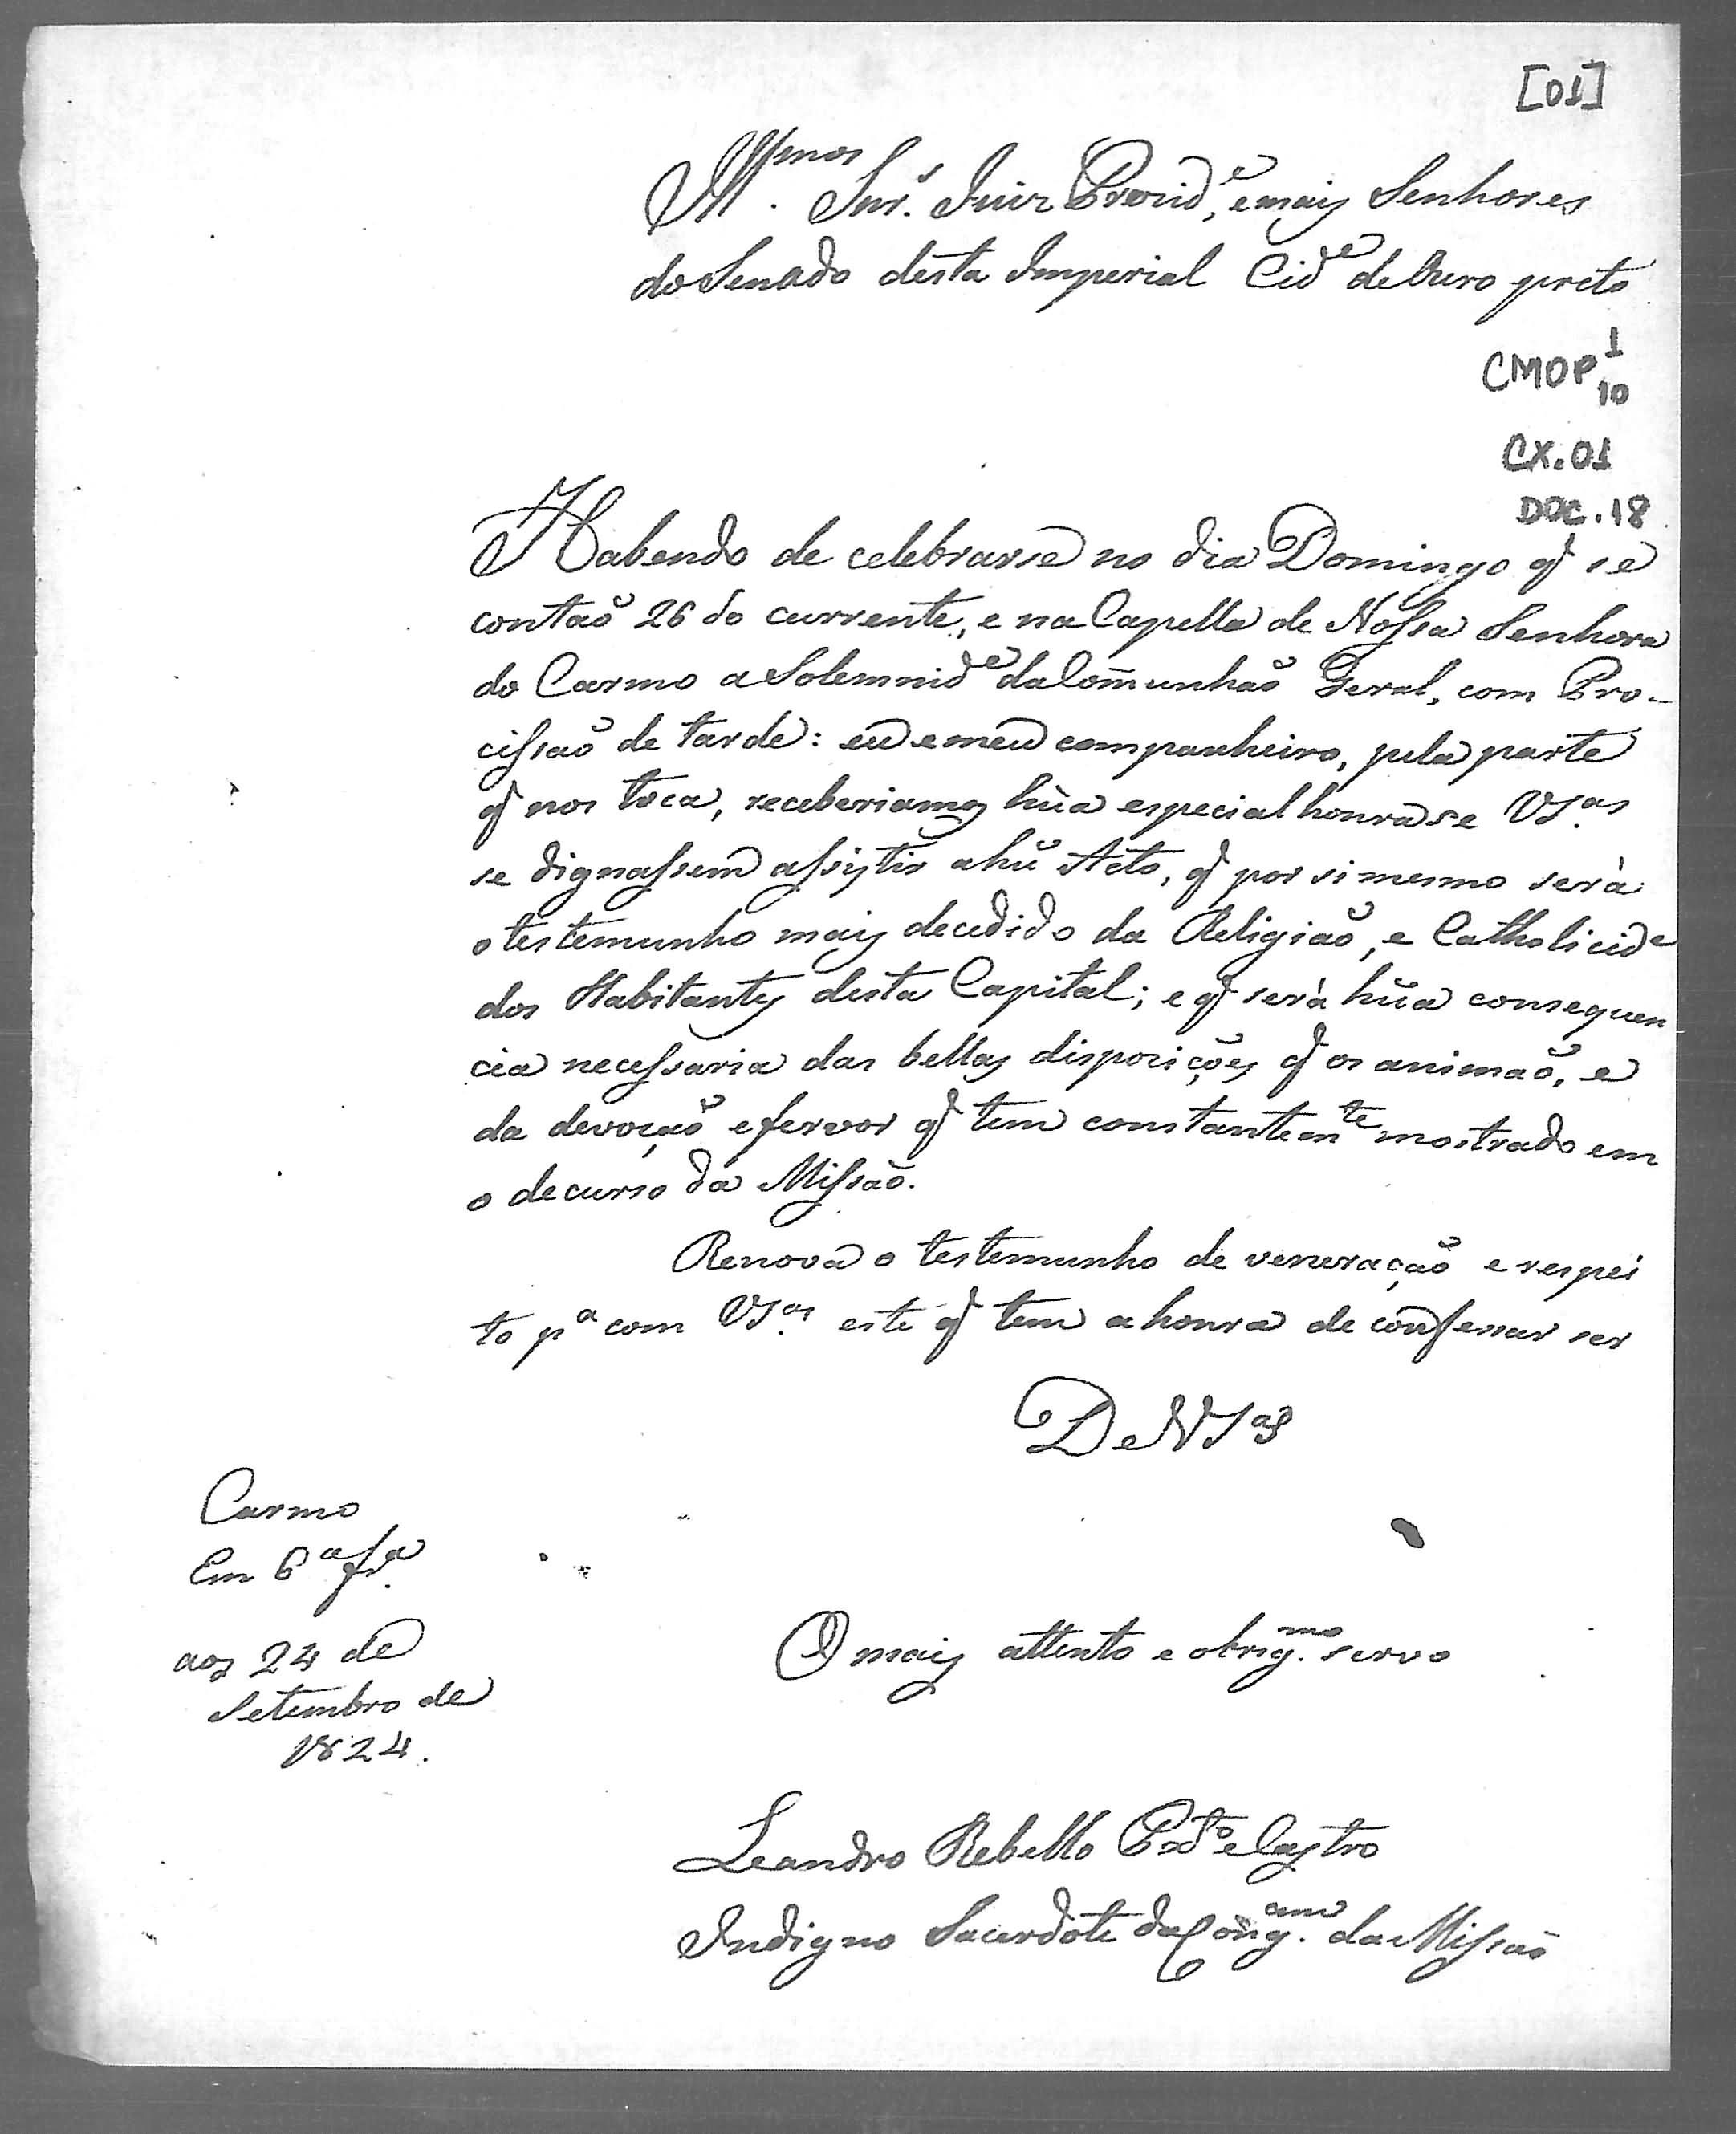 [01]
Illmos. Snrs. Juiz Prezide, e mais Senhores
do Senado desta Imperial Cide de Ouro preto
CMOP 1
10
CX.01
DOC.18
Habendo de celebrarse no dia Domingo q̃ se
contaõ 26 do currente, e na Capella de Nossa Senhora
do Carmo a Solemnide da Com̃unhaõ Geral, com Pro-
cissaõ de tarde: eu e meu companheiro, pela parte
q̃ nos toca, receberiamos hũa especial honra se VSas.
se dignassem assistir a hũ Acto, q̃ por si mesmo serà
o testemunho mais decedido da Religiaõ, e Catholicide
dos Habitantes desta Capital; e q̃ serà hũa consequen
cia necessaria das bellas disposições q̃ os animaõ, e
da devoçaõ e fervor q̃ tem constantemte mostrado em
o decurso da Missaõ.
Renova o testemunho de veneraçaõ e respei
to pa com VSas. este q̃ tem a honra de confessar ser
De VSas
Carmo
Em 6a fra.
aos 24 de
Setembro de
1824.
O mais attento e obrigmo. servo
Leandro Rebello Pxto e Castro
Indigno Sacerdote da Congam. da Missaõ